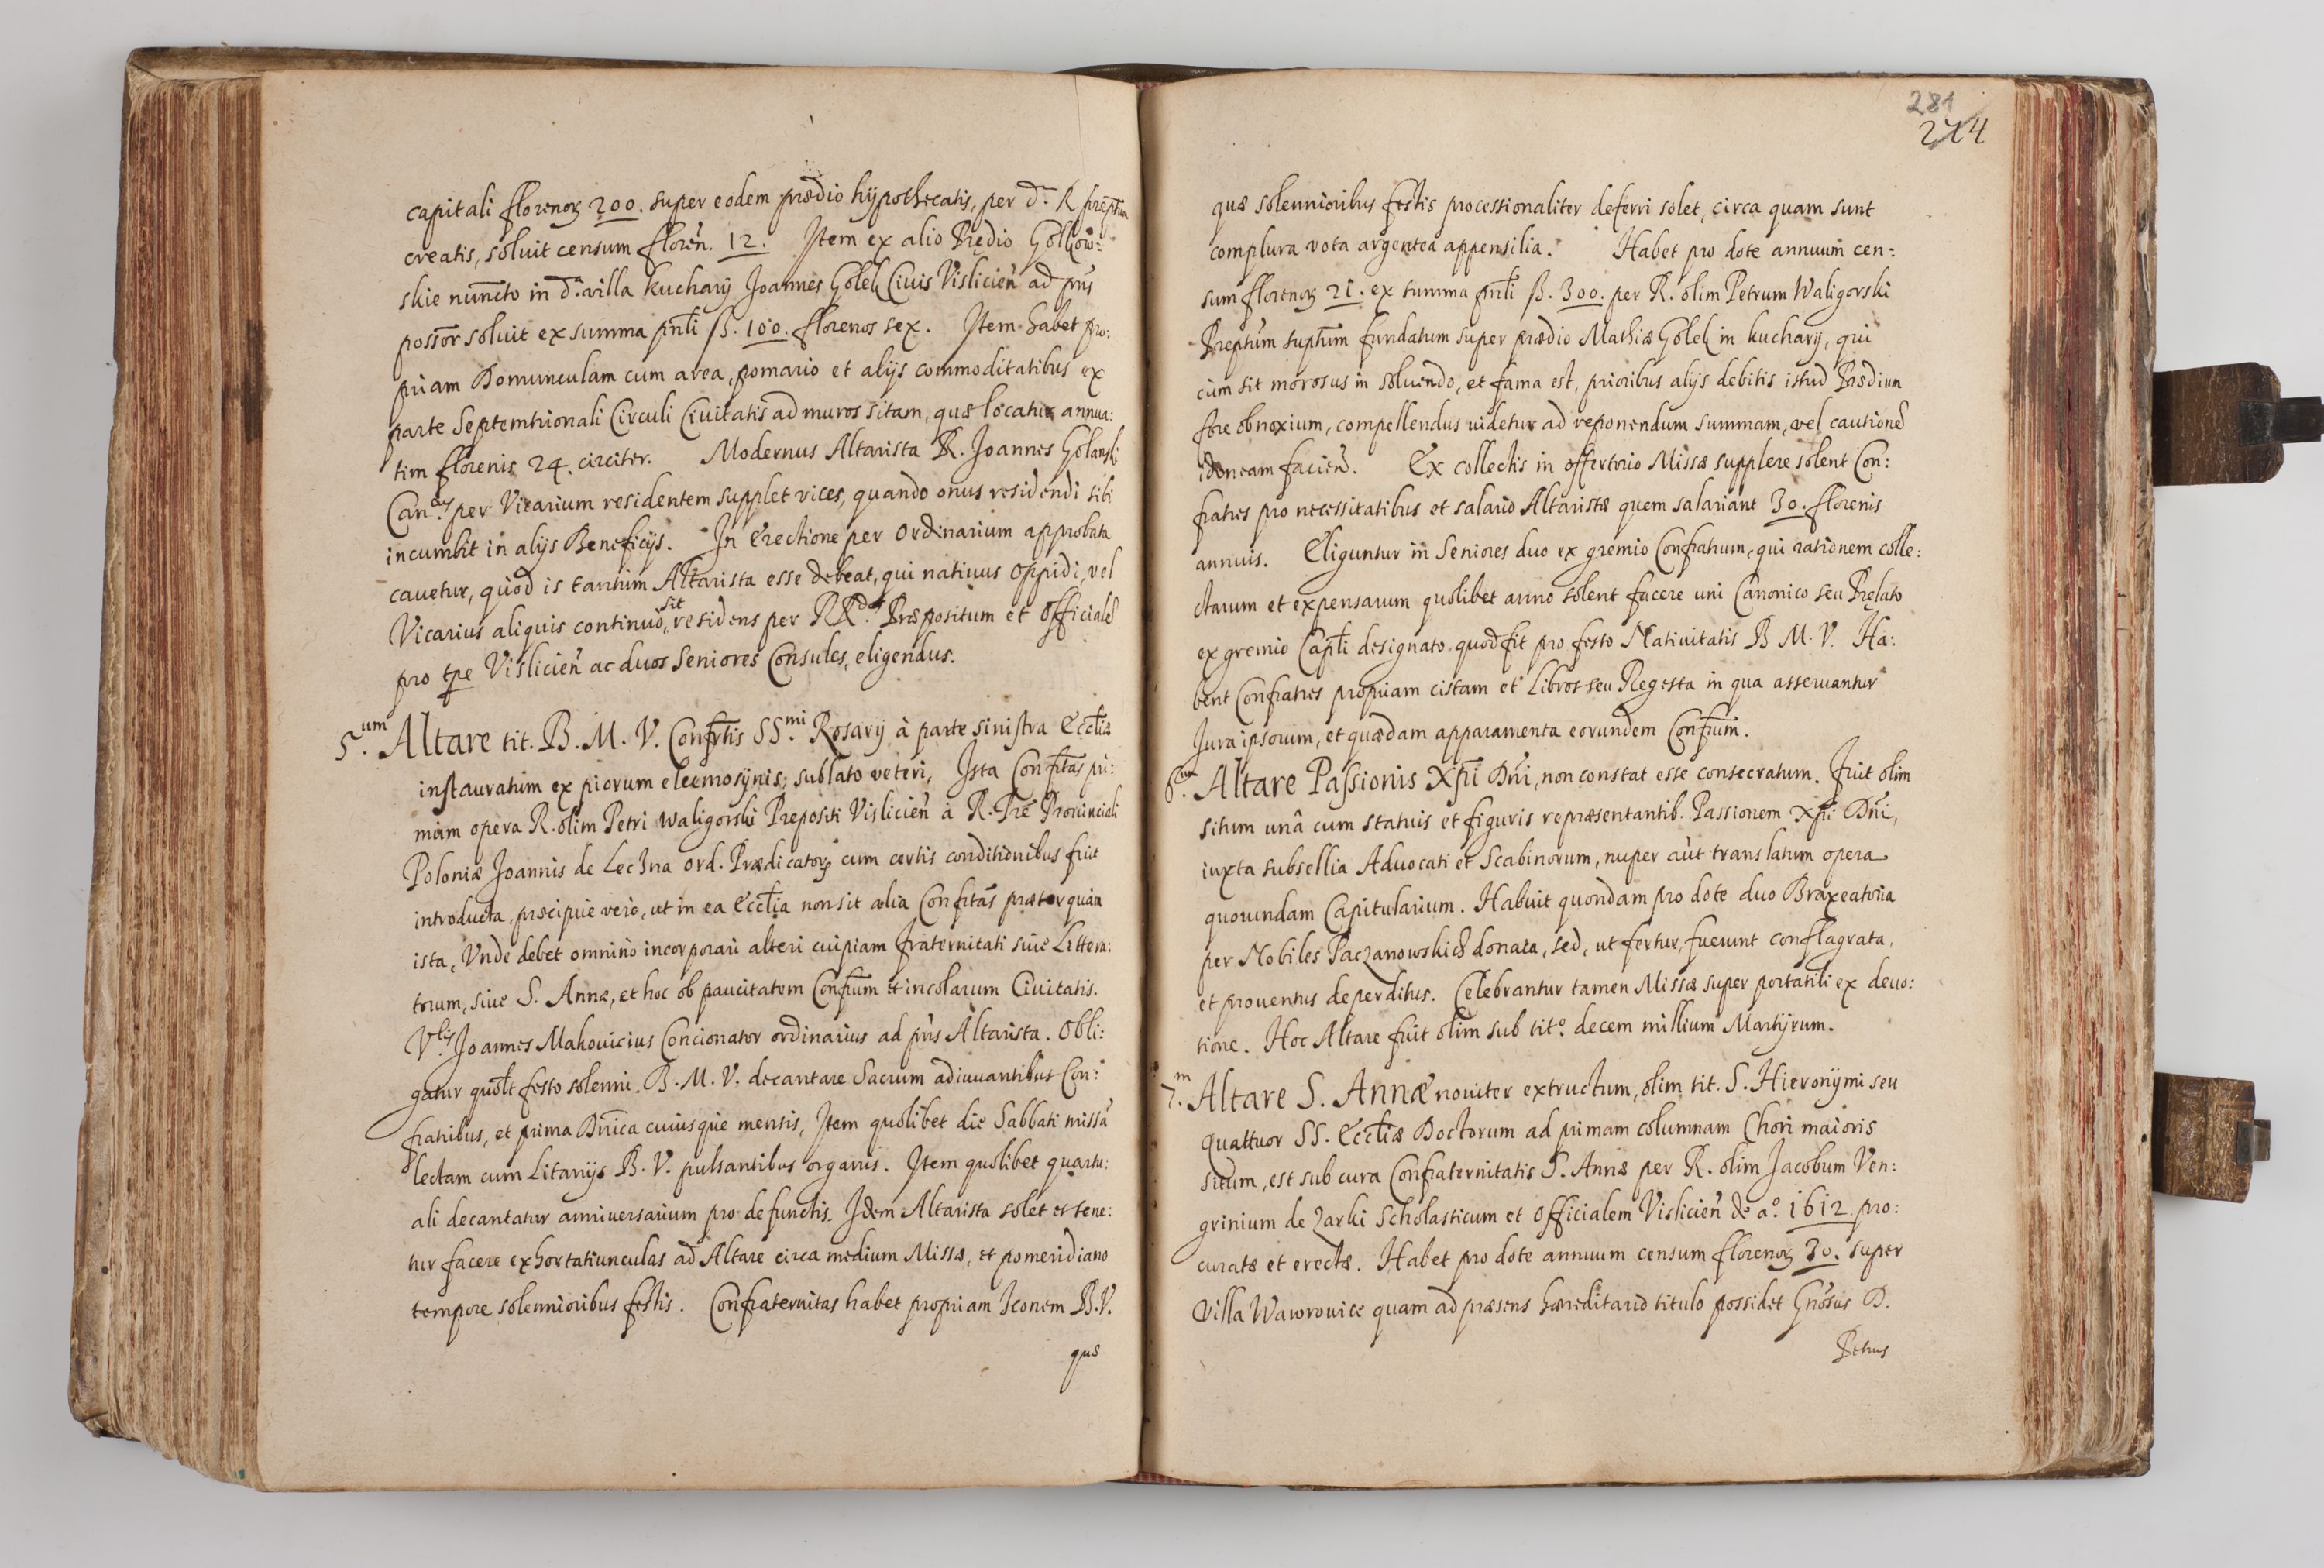 capitali florenoꝝ 200. super eodem prædio hypothecatis, per d. R præptum
creatis, soluit censum floren̄. 12. Item ex alio Prędio Golkow-
skie nuncto in d. villa kuchary Joannes Golek Ciuis Vislicien̄ ad pn̄s
possor̄ soluit ex summa pn̄li ß. 100. florenos sex. Item habet pro:
priam Domunculam cum area, pomario et alijs commoditatibus ex
parte Septemtrionali Circuli Ciuitatis ad muros sitam, quæ locatur annua:
tim florenis 24. circiter. Modernus Altarista R. Joannes Golanski
Can.cus per Vicarium residentem supplet vices, quando onus residendi sibi
incumbit in alijs Beneficijs. In Erectione per Ordinarium approbata
cauetur, quòd is tantùm Altarista esse debeat, qui natiuus oppidi, vel
Vicarius aliquis continuò sit residens per RR.dos Præpositum et Officialē
pro tp̄e Vislicien̄ ac duos Seniores Consules, eligendus.
5.um Altare tit. B. M. V. Confrt̄is SS.mi Rosarij à parte sinistra Eccl̄iæ
instauratum ex piorum eleemosynis; sublato veteri, Ista Confrt̄as pri:
mùm opera R. olim Petri Waligorski Prepositi Vislicien̄ à R. Pr̄e Prouinciali
Poloniæ Joannis de Leczna ord. Prædicatoꝝ cum certis conditionibus fuit
introducta, præcipuè verò, ut in ea Eccl̄ia non sit alia Confrt̄as præterquàm
ista, Vnde debet omninò incorporari alteri cuipiam fraternitati siue Littera:
torum, siue S. Annæ, et hoc ob paucitatem Confrūm et incolarum Ciuitatis.
V.lis Joannes Makouicius Concionator ordinarius ad pn̄s Altarista. Obli:
gatur quol̄t festo solenni B. M. V. decantare Sacrum adiuuantibus Con:
fratribus, et prima Dn̄ica cuiusque mensis, Item quolibet die Sabbati missā
lectam cum Litanijs B. V. pulsantibus organis. Item quolibet quartu:
ali decantatur anniuersarium pro defunctis. Idem Altarista solet et tene:
tur facere exhortatiunculas ad Altare circa medium Missæ, et pomeridiano
tempore solennioribus festis. Confraternitas habet propriam Iconem B. V.
quæ
281
274
quæ solennioribus festis processionaliter deferri solet, circa quam sunt
complura vota argentea appensilia. Habet pro dote annuum cen:
sum florenoꝝ 21. ex summa pn̄li ß. 300. per R. olim Petrum Waligorski
Preptūm suptūm fundatum super prædio Mathiæ Golek in kuchary, qui
cùm sit morosus in soluendo, et fama est, prioribus alijs debitis istud Prædium
fore obnoxium, compellendus uidetur ad reponendum summam, vel cautionē
idoneam facien̄d. Ex collectis in offertorio Missæ supplere solent Con:
fratres pro necessitatibus et salario Altaristæ quem salariant 30. florenis
annuis. Eliguntur in Seniores duo ex gremio Confratrum, qui rationem colle:
ctarum et expensarum quolibet anno solent facere uni Canonico seu Prelato
ex gremio Capl̄i designato quod fit pro festo Natiuitatis B. M. V. Ha:
bent Confratres propriam cistam et Libros seu Regesta in qua asseruantur
Jura ipsorum, et quædam apparamenta eorundem Confrūm.
6.um Altare Passionis Xp̄i Dn̄i, non constat esse consecratum. fuit olim
situm unâ cum statuis et figuris repræsentantib. Passionem Xp̄i Dn̄i,
iuxta subsellia Aduocati et Scabinorum, nuper aūt translatum opera
quorundam Capitularium. Habuit quondam pro dote duo Braxeatoria
per Nobiles Paczanowskios donata, sed, ut fertur, fuerunt conflagrata,
et prouentus deperditus. Celebrantur tamen Missæ super portatili ex deuo:
tione. Hoc Altare fuit olim sub tit.o decem millium Martyrum.
7.m Altare S. Annæ nouiter extructum, olim tit. S. Hieronymi seu
quattuor SS. Eccl̄iæ Doctorum ad primam columnam Chori maioris
situm, est sub cura Confraternitatis S. Annæ per R. olim Jacobum Ven:
grinium de Zarki Scholasticum et Officialem Vislicien̄ de a.o 1612. pro:
curatæ et erectæ. Habet pro dote annuum censum florenoꝝ 30. super
Villa Wawrowice quam ad præsens hæreditario titulo possidet Gn̄osus D.
Petrus